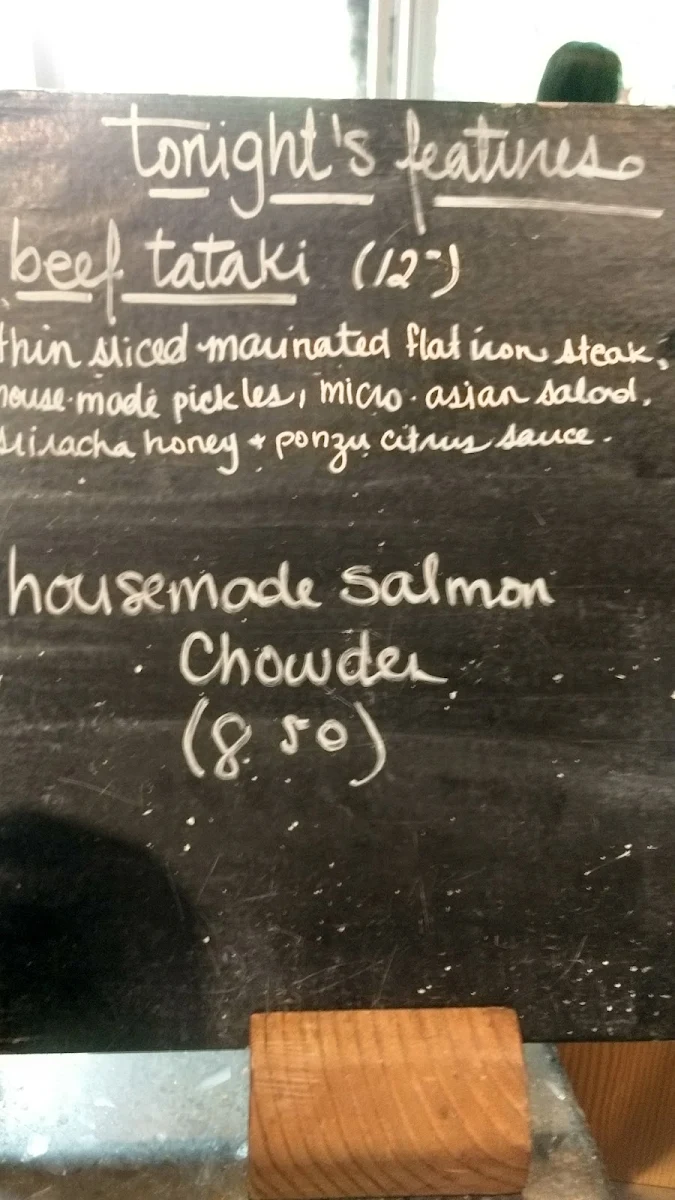 tonight's features
beef tataki (12-)
thin sliced marinated flat iron steak,
house-made pickles, micro-asian salad,
sriracha honey + ponzu citrus sauce.
housemade salmon
Chowder
(8.50)